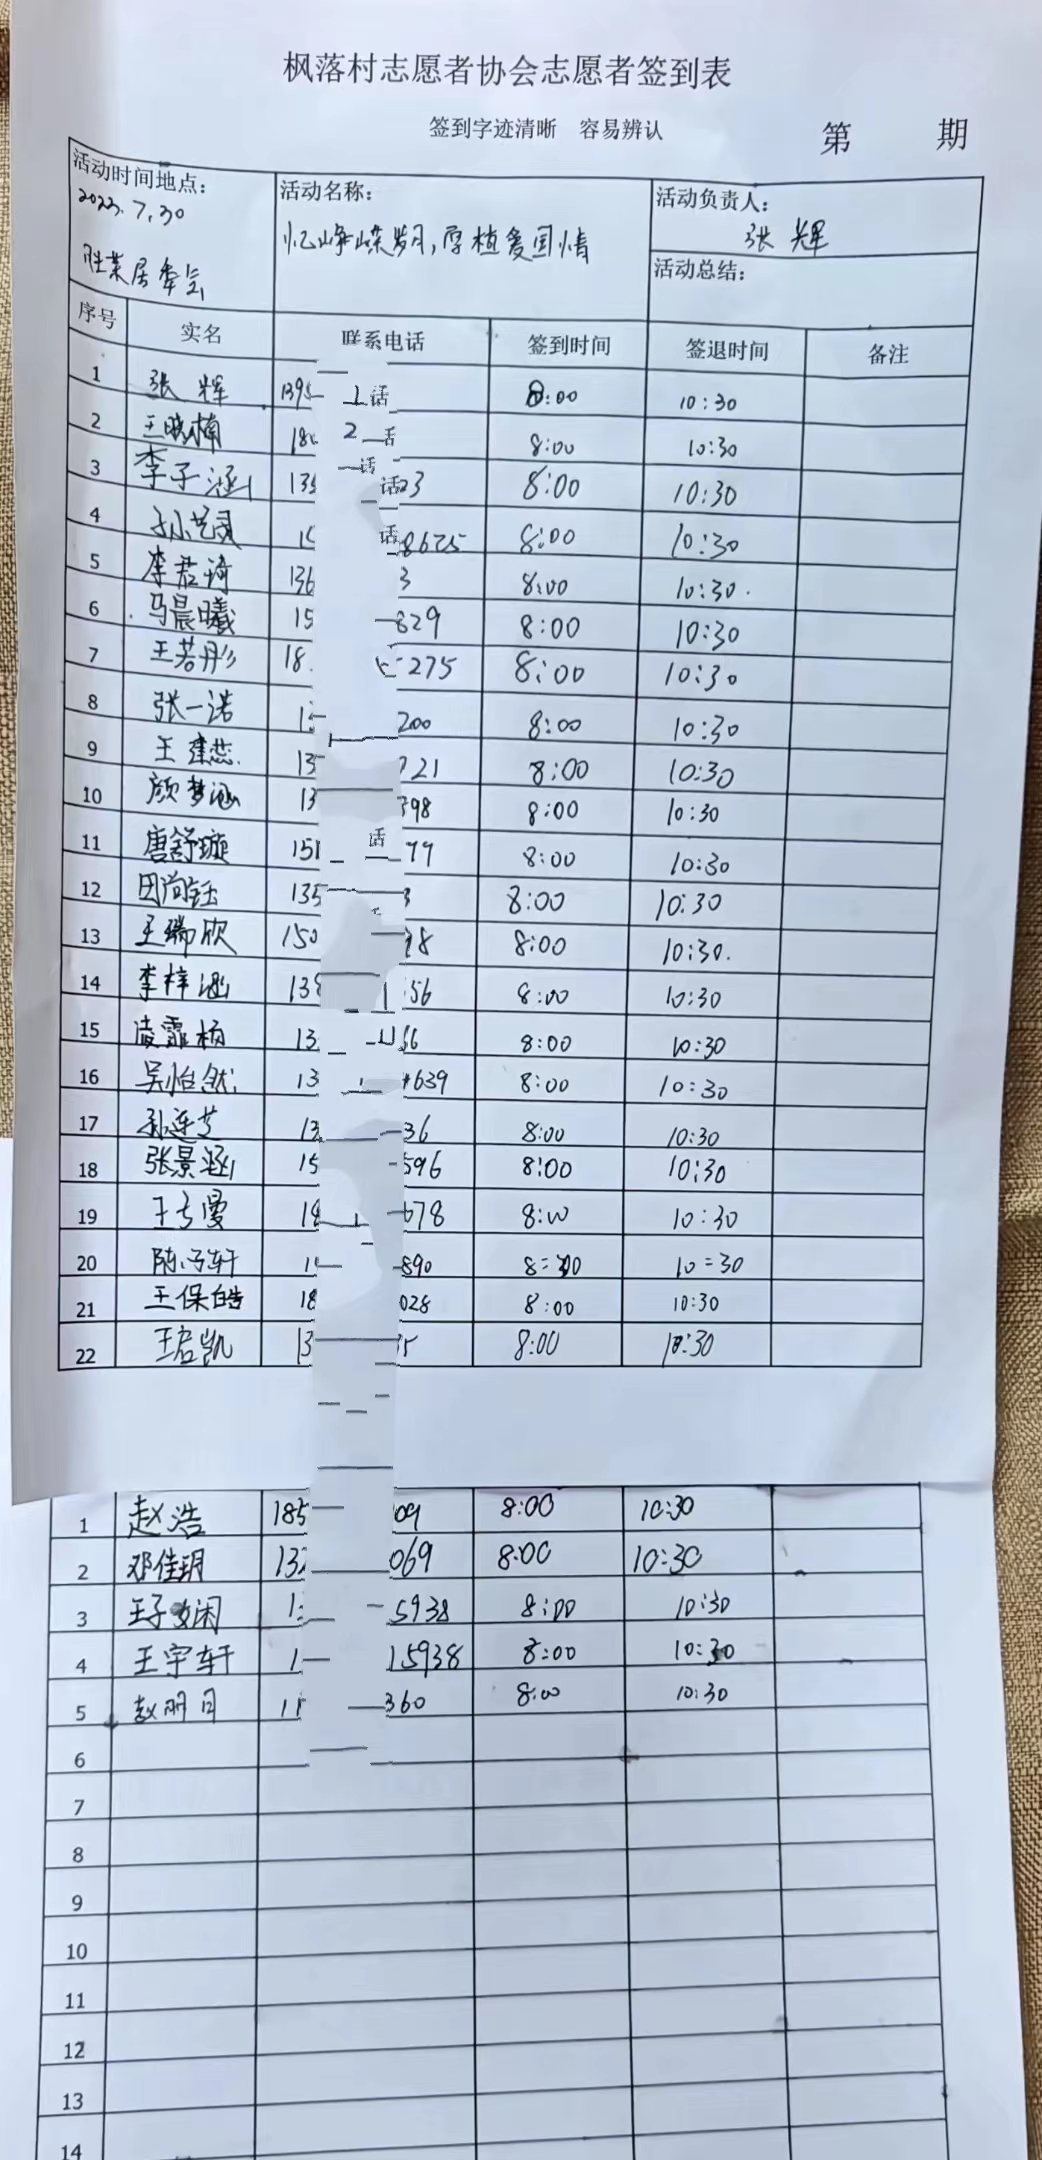 枫落村志愿者协会志愿者签到表
签到字迹清晰 容易辨认
第 期
活动时间地点: 活动名称: 活动负责人:
2023.7.30 忆峥嵘岁月,厚植爱国情 张辉
居委会 活动总结:
序号 实名 联系电话 签到时间 签退时间 备注
1 张辉 139 8:00 10:30
2 王晓楠 18 8:00 10:30
3 李子涵 135 03 8:00 10:30
4 孙艺灵 8625 8:00 10:30
5 李君琦 136 3 8:00 10:30
6 马晨曦 15 829 8:00 10:30
7 王若彤 18 275 8:00 10:30
8 张一诺 200 8:00 10:30
9 王建蕊 13 721 8:00 10:30
10 颜梦涵 13 398 8:00 10:30
11 唐舒璇 151 8:00 10:30
12 135 8:00 10:30
13 王瑞欣 150 98 8:00 10:30
14 李梓涵 138 56 8:00 10:30
15 凌霏杨 13 66 8:00 10:30
16 吴怡然 13 639 8:00 10:30
17 孙连芝 13 36 8:00 10:30
18 张景涵 15 596 8:00 10:30
19 678 8:00 10:30
20 陈子轩 890 10=30
21 王保皓 18 028 8:00 10:30
22 王启凯 13 8:00 10:30
1 赵浩 185 09 8:00 10:30
2 邓佳玥 132 069 8:00 10:30
3 王子娴 5938 8:00 10:30
4 王宇轩 15938 8:00 10:30
5 赵明月 360 8:00 10:30
6
7
8
9
10
11
12
13
14